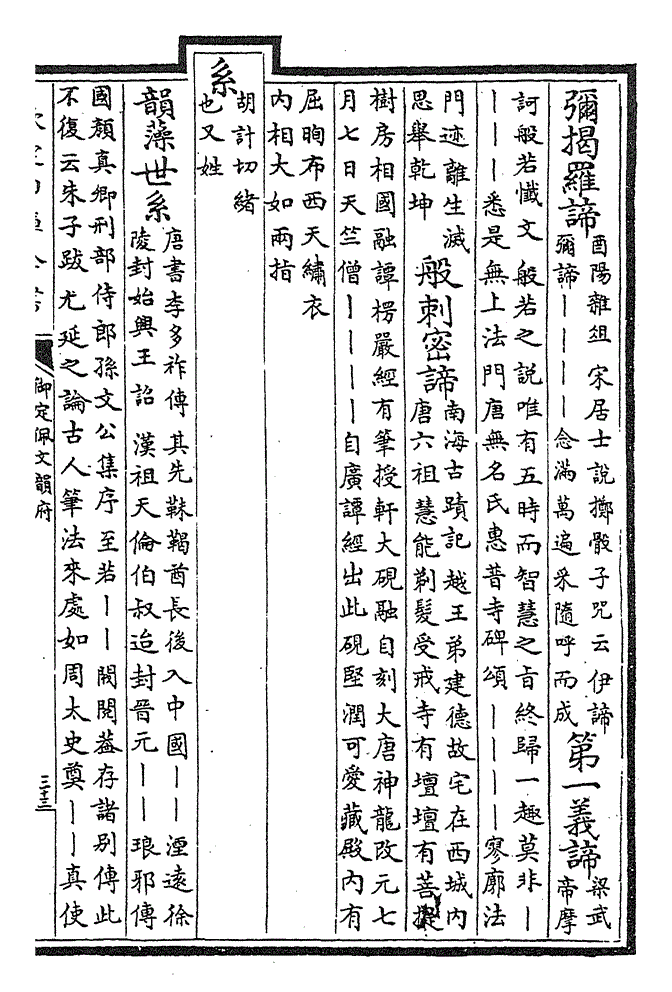 彌揭羅諦
酉陽雜俎 宋居士說擲骰子咒云伊諦
彌諦丨丨丨丨念滿萬遍采隨呼而成
第一義諦
梁武
帝摩
訶般若懺文 般若之說唯有五時而智慧之旨終歸一趣莫非丨
丨丨丨悉是無上法門唐無名氏惠普寺碑頌丨丨丨丨寥廓法
門迹離生滅
思舉乾坤
般刺密諦
南海古蹟記 越王弟建德故宅在西城内
唐六祖慧能剃髮受戒寺有壇壇有菩提
樹房相國融譚楞嚴經有筆授軒大硯融自刻大唐神龍改元七
月七日天竺僧丨丨丨丨自廣譚經出此硯堅潤可愛藏殿内有
屈眴布西天繡衣
内相大如兩指
系
胡計切緒
也又姓
韻藻世系
唐書李多祚傳 其先靺鞨酋長後入中國丨丨湮遠徐
陵封始興王詔 漢祖天倫伯叔迨封晉元丨丨琅邪傳
國顏真卿刑部侍郎孫文公集序 至若丨丨閥閱葢存諸别傳此
不復云朱子跋尤延之論古人筆法來處如周太史奠丨丨真使
御定佩文韻府
三十三